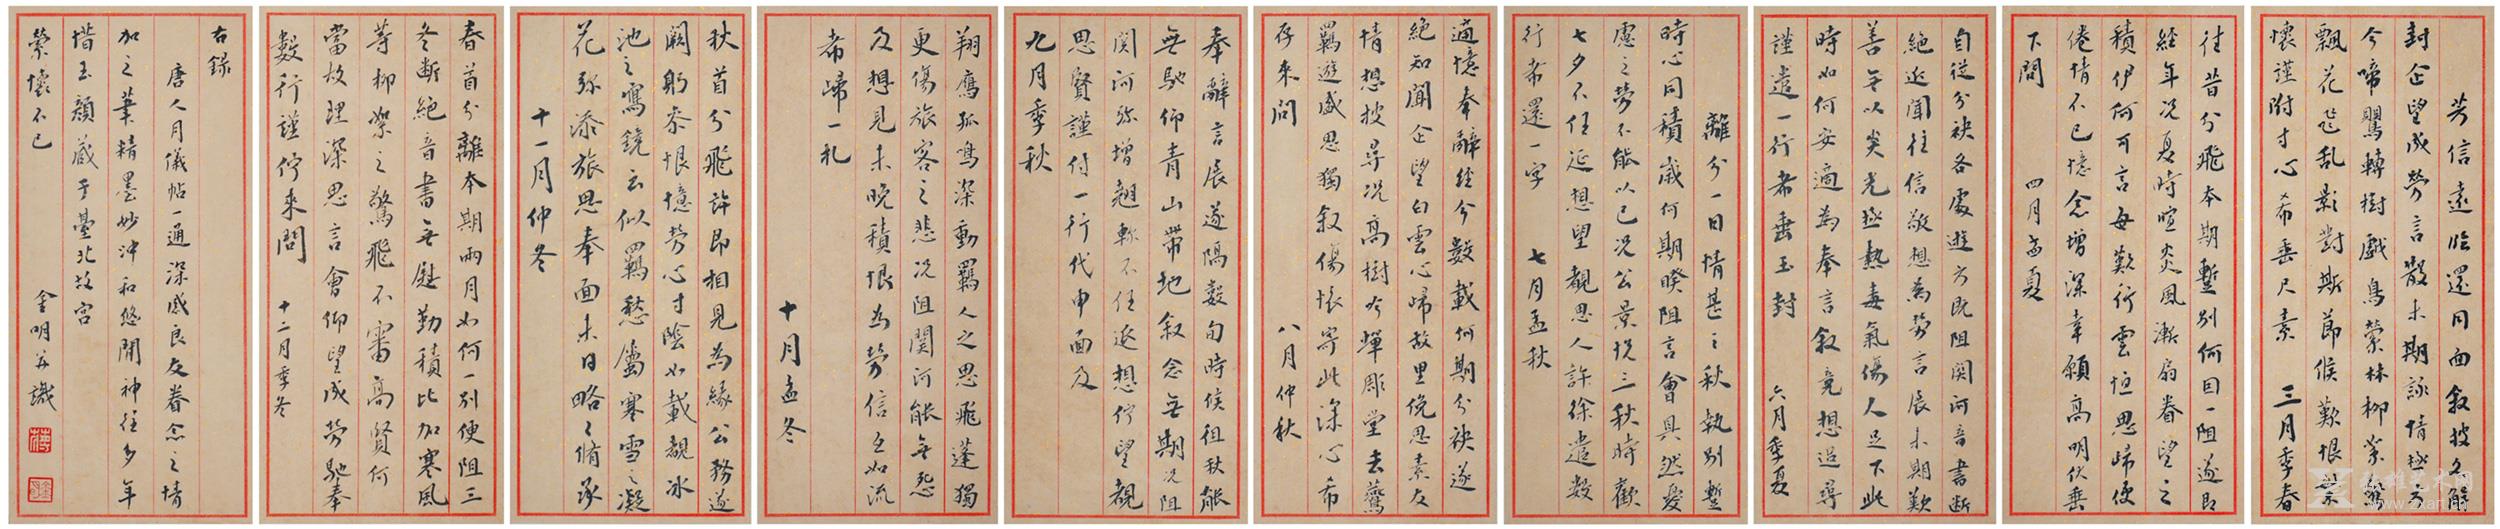 芳信遠臨還同面敘披文解
封企望成勞言散未期詠情極乃
今啼鸎轉樹戲鳥縈林柳絮驚
飄花飛乱影對斯節候歎恨縈
懷謹附寸心希垂尺素 三月季春
往昔分飛本期蹔別何曰一阻遂即
經年況夏時喧炎風漸扇眷望之
積伊何可言每歎行雲恒思歸便
倦情不已憶念增深幸願高明伏垂
下問 四月孟夏
自從分袂各處遊方既阻関河音書断
絕近聞往信敬想為勞言展未期歎
善無以炎光極熱毒氣傷人足下此
時如何安適為奉言敘竟想過尋
謹遣一行希垂玉封 六月季夏
離分一日情甚三秋執別蹔
時心同積歲何期睽阻言會具然憂
慮之勞不能以已況公景悦三秋時歡
七夕不任延想望覩思人許徐遣數
行希還一字 七月孟秋
適憶奉辭經今數載何期分袂遂
絕知聞企望白雲心歸故里俛思素友
情想披尋況高樹吟蟬彫堂去鷰
羈遊感思獨敘傷懐寄此深心希
存来問 八月仲秋
奉辭言展遂隔數旬時候徂秋能
無馳仰青山帶地敘念無期況阻
関河弥增翹軫不任返想佇望覩
思賢謹付一行代申面及
九月季秋
翔鷹孤鳴深動羈人之思飛蓬獨
更傷旅客之悲況阻関河能無怨
及想見未晚積恨為勞信至如流
希歸一札
十月孟冬
秋首分飛許即相見為緣公務遂
闕躬叅恨憶勞心寸陰如載覩冰
池之寫鏡云似羈愁屬寒雪之凝
花弥添旅思奉面未日略々脩承
十一月仲冬
春首分離本期兩月如何一別便阻三
冬断絕音書無慰勤積比加寒風
等柳絮之驚飛不審高賢何
當故理深思言會仰望成勞馳奉
數行謹佇來問 十二月季冬
右錄
唐人月儀帖一通深感良友眷念之情
加之筆精墨妙沖和悠閒神往多年
惜玉顏藏于臺北故宮
縈懷不已 金明并識